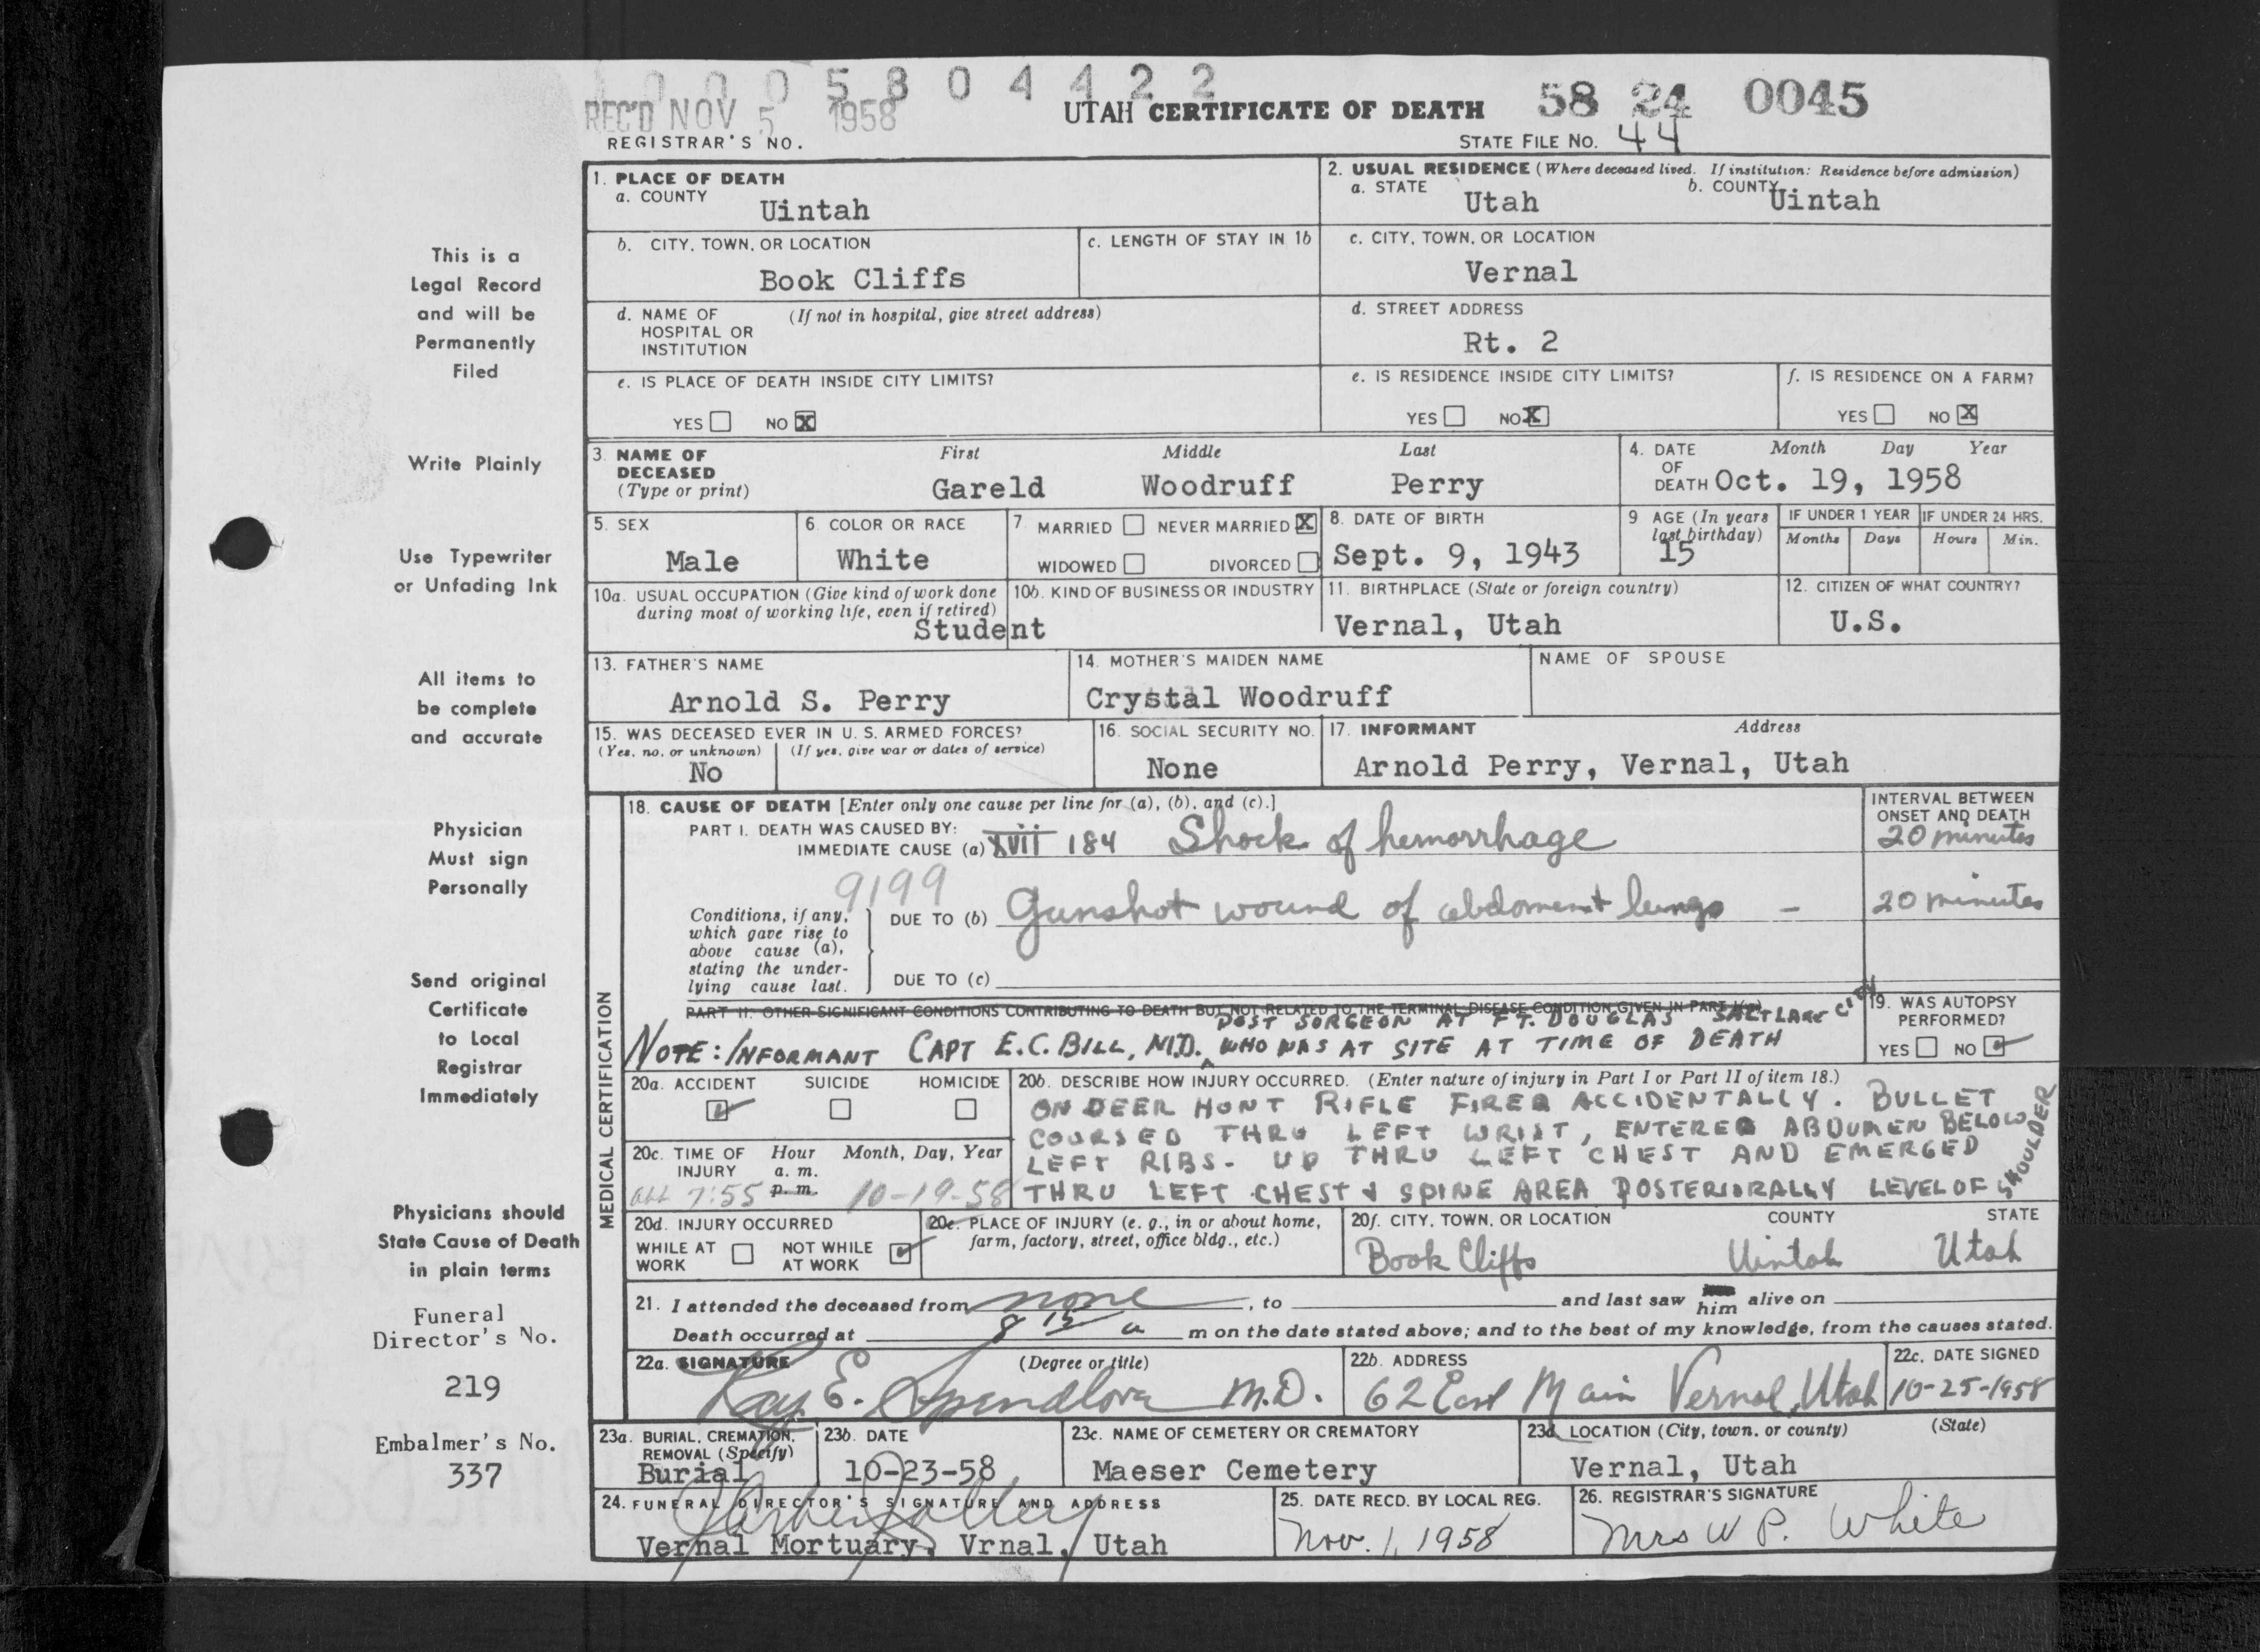 0 0 0 5 8 0 4 4 2 2
REC'D NOV 5 1958
UTAH CERTIFICATE OF DEATH
58 24 0045
REGISTRAR'S NO.
STATE FILE NO. 44
1. PLACE OF DEATH
a. COUNTY
Uintah
2. USUAL RESIDENCE (Where deceased lived. If institution: Residence before admission)
a. STATE
Utah
b. COUNTY
Uintah
b. CITY, TOWN, OR LOCATION
Book Cliffs
c. LENGTH OF STAY IN 1b
c. CITY, TOWN, OR LOCATION
Vernal
d. NAME OF HOSPITAL OR INSTITUTION
(If not in hospital, give street address)
d. STREET ADDRESS
Rt. 2
e. IS PLACE OF DEATH INSIDE CITY LIMITS?
YES NO X
e. IS RESIDENCE INSIDE CITY LIMITS?
YES NO X
f. IS RESIDENCE ON A FARM?
YES NO X
3. NAME OF DECEASED
(Type or print)
First Middle Last
Gareld Woodruff Perry
4. DATE OF DEATH
Month Day Year
Oct. 19, 1958
5. SEX
Male
6. COLOR OR RACE
White
7. MARRIED NEVER MARRIED X
WIDOWED DIVORCED
8. DATE OF BIRTH
Sept. 9, 1943
9 AGE (In years last birthday)
15
IF UNDER 1 YEAR
Months Days
IF UNDER 24 HRS.
Hours Min.
10a. USUAL OCCUPATION (Give kind of work done during most of working life, even if retired)
Student
10b. KIND OF BUSINESS OR INDUSTRY
11. BIRTHPLACE (State or foreign country)
Vernal, Utah
12. CITIZEN OF WHAT COUNTRY?
U.S.
13. FATHER'S NAME
Arnold S. Perry
14. MOTHER'S MAIDEN NAME
Crystal Woodruff
NAME OF SPOUSE
15. WAS DECEASED EVER IN U. S. ARMED FORCES?
(Yes, no, or unknown) (If yes, give war or dates of service)
No
16. SOCIAL SECURITY NO.
None
17. INFORMANT Address
Arnold Perry, Vernal, Utah
MEDICAL CERTIFICATION
18. CAUSE OF DEATH [Enter only one cause per line for (a), (b), and (c).]
INTERVAL BETWEEN ONSET AND DEATH
PART I. DEATH WAS CAUSED BY:
IMMEDIATE CAUSE (a) XVII 184 Shock of hemorrhage
20 minutes
9199
Conditions, if any, which gave rise to above cause (a), stating the underlying cause last.
DUE TO (b) Gunshot wound of abdomen + lungs -
20 minutes
DUE TO (c)
PART II. OTHER SIGNIFICANT CONDITIONS CONTRIBUTING TO DEATH BUT NOT RELATED TO THE TERMINAL DISEASE CONDITION GIVEN IN PART I(a)
POST SORGEON AT FT. DOUGLAS SALT LAKE CITY
NOTE: INFORMANT CAPT E.C. BILL, M.D. WHO WAS AT SITE AT TIME OF DEATH
19. WAS AUTOPSY PERFORMED?
YES NO ✓
20a. ACCIDENT SUICIDE HOMICIDE
✓
20b. DESCRIBE HOW INJURY OCCURRED. (Enter nature of injury in Part I or Part II of item 18.)
ON DEER HUNT RIFLE FIRED ACCIDENTALLY. BULLET
COURSED THRU LEFT WRIST, ENTERED ABDOMEN BELOW
LEFT RIBS- UP THRU LEFT CHEST AND EMERGED
THRU LEFT CHEST & SPINE AREA POSTERIORALLY LEVEL OF SHOULDER
20c. TIME OF INJURY
Hour Month, Day, Year
a. m.
p. m.
7:55 10-19-58
20d. INJURY OCCURRED
WHILE AT WORK NOT WHILE AT WORK ✓
20e. PLACE OF INJURY (e. g., in or about home, farm, factory, street, office bldg., etc.)
20f. CITY, TOWN, OR LOCATION COUNTY STATE
Book Cliffs Uintah Utah
21. I attended the deceased from none, to and last saw him alive on
Death occurred at 8 15 a m on the date stated above; and to the best of my knowledge, from the causes stated.
22a. SIGNATURE (Degree or title)
Ray E. Spendlove M.D.
22b. ADDRESS
62 East Main Vernal, Utah
22c. DATE SIGNED
10-25-1958
23a. BURIAL, CREMATION, REMOVAL (Specify)
Burial
23b. DATE
10-23-58
23c. NAME OF CEMETERY OR CREMATORY
Maeser Cemetery
23d. LOCATION (City, town, or county) (State)
Vernal, Utah
24. FUNERAL DIRECTOR'S SIGNATURE AND ADDRESS
Vernal Mortuary, Vrnal, Utah
25. DATE RECD. BY LOCAL REG.
Nov. 1, 1958
26. REGISTRAR'S SIGNATURE
Mrs W P. White
This is a
Legal Record
and will be
Permanently
Filed
Write Plainly
Use Typewriter
or Unfading Ink
All items to
be complete
and accurate
Physician
Must sign
Personally
Send original
Certificate
to Local
Registrar
Immediately
Physicians should
State Cause of Death
in plain terms
Funeral
Director's No.
219
Embalmer's No.
337